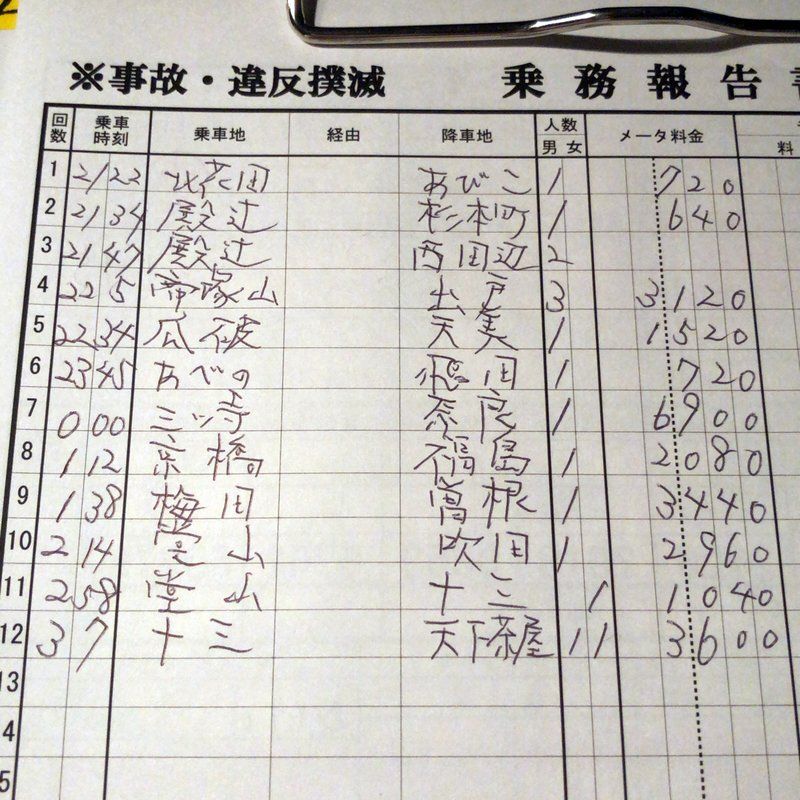 ※事故・違反撲滅 乗務報告書
回数 乗車時刻 乗車地 経由 降車地 人数 男 女 メータ料金 料
1 21 22 北花田 あびこ 1 720
2 21 34 殿辻 杉本町 1 640
3 21 47 殿辻 西田辺 2
4 22 5 帝塚山 出戸 3 3120
5 22 34 瓜破 天美 1 1520
6 23 45 あべの 飛田 1 720
7 0 00 三ッ寺 奈良 1 6900
8 1 12 京橋 福島 1 2080
9 1 38 梅田 曽根 1 3440
10 2 14 堂山 吹田 1 2960
11 2 58 堂山 十三 1 1040
12 3 7 十三 天下茶屋 1 1 3600
13
4
5